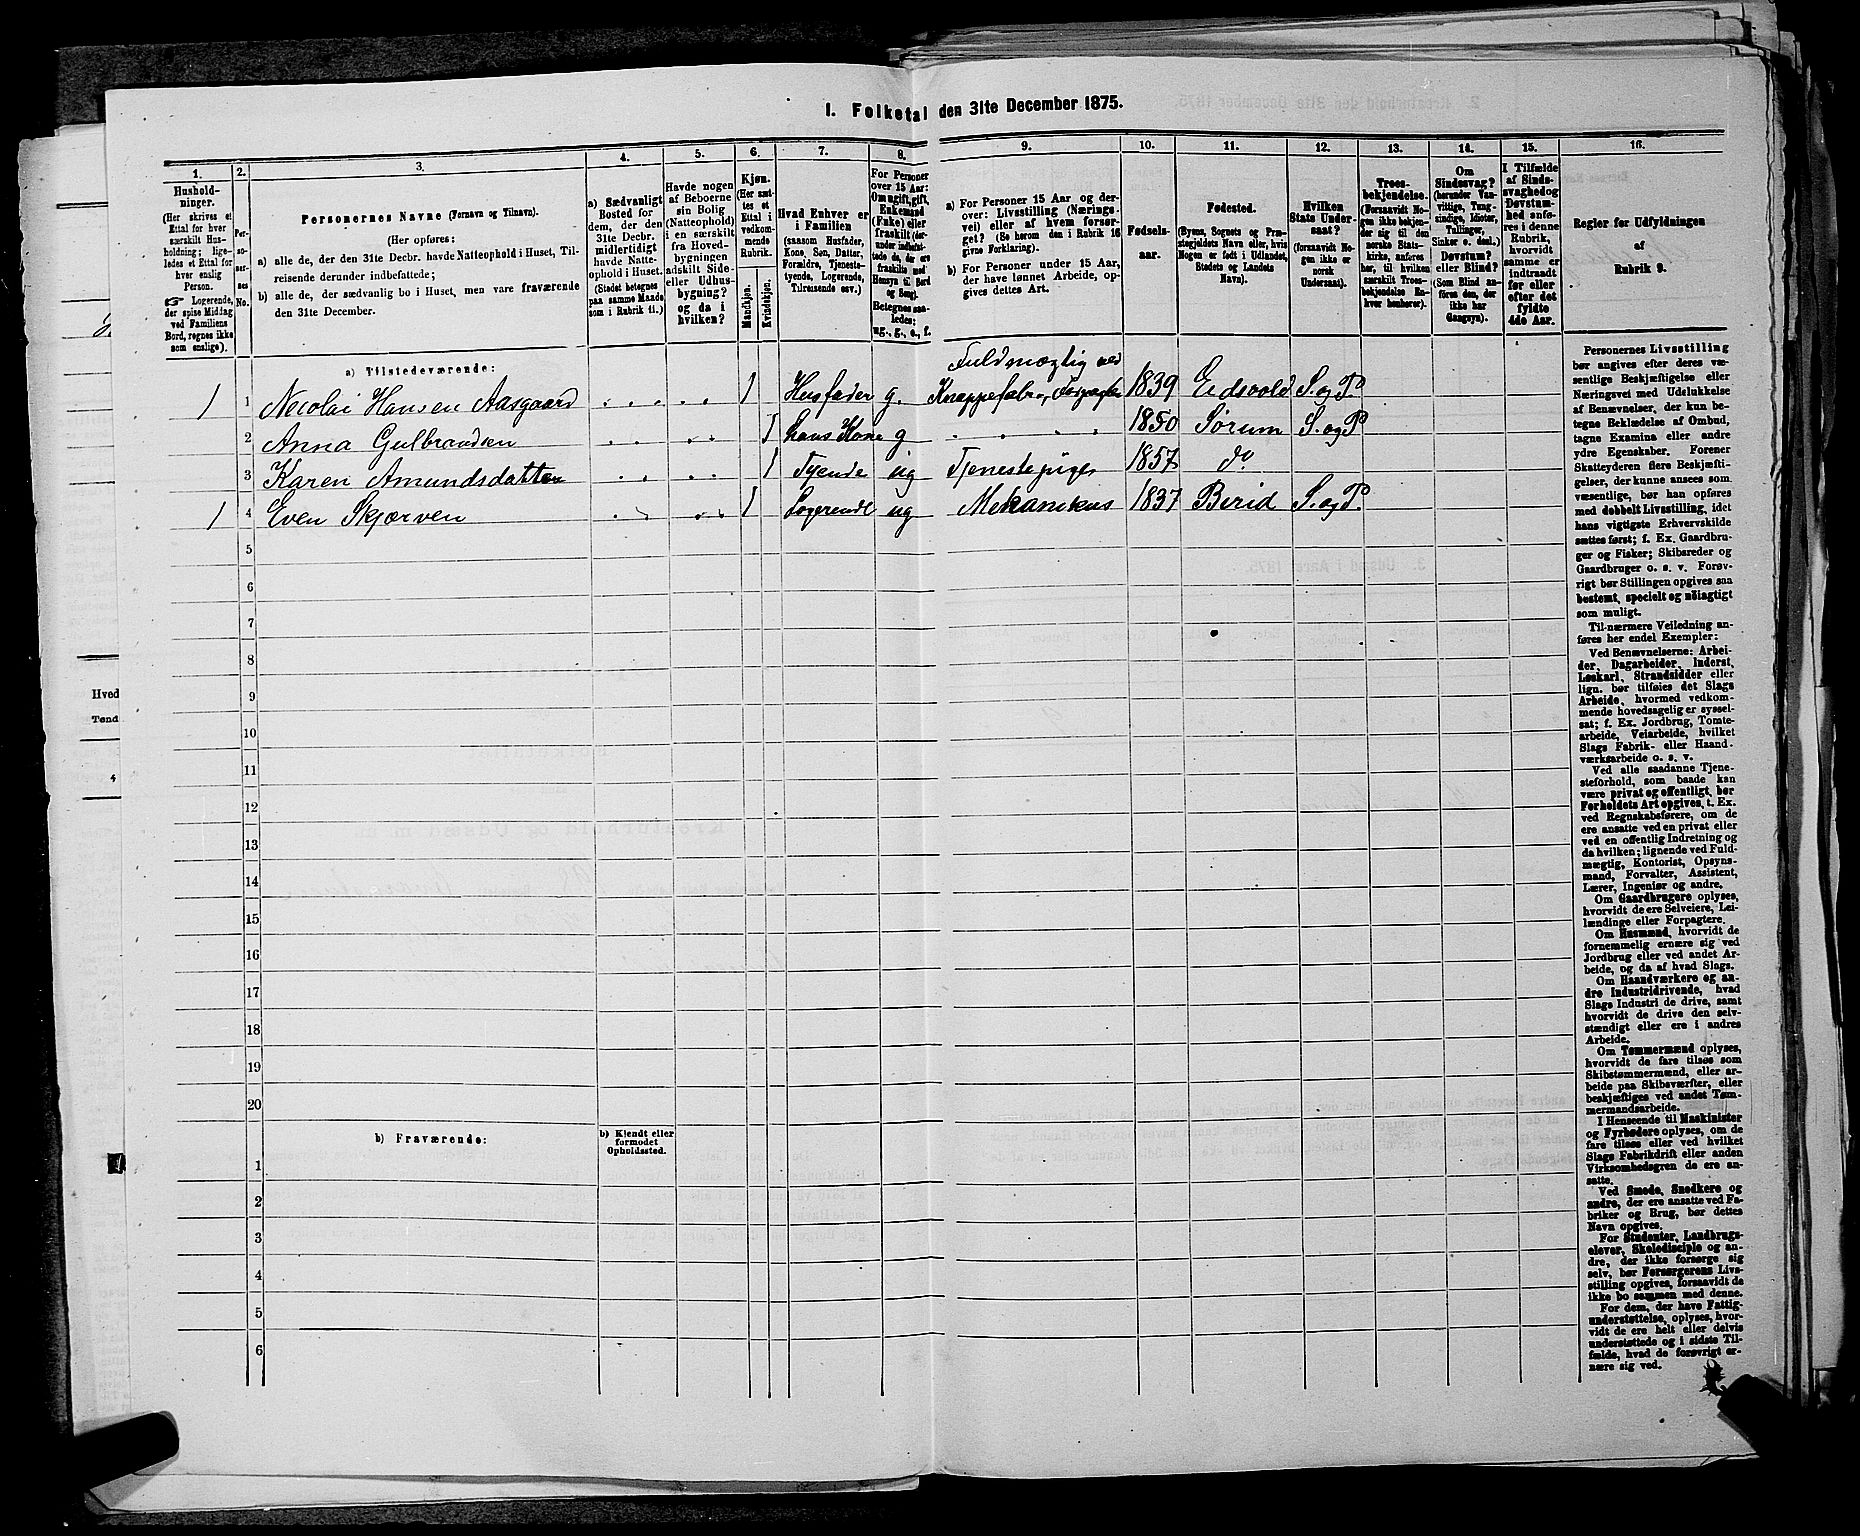 I. Folketal den 31te December 1875.
1. 2. 3. 4. 5. 6. 7. 8. 9. 10. 11. 12. 13. 14. 15. 16.
Hushold-
ninger.
(Her skrives et
Ettal for hver
særskilt Hus-
holdning; lige-
ledes et Ettal for
hver enslig
Person.
Logerende,
der spise Middag
ved Familiens
Bord, regnes ikke
som enslige).
Per-
so-
ner-
nes
No.
Personernes Navne (Fornavn og Tilnavn).
(Her opføres:
a) alle de, der den 31te Decbr. havde Natteophold i Huset, Til-
reisende derunder indbefattede;
b) alle de, der sædvanlig bo i Huset, men vare fraværende
den 31te December.
a) Sædvanligt
Bosted for
dem, der den
31te Decbr.
midlertidigt
havde Natte-
ophold i Huset.
(Stedet betegnes
paa samme Maade
som i Rubrik 11.)
Havde nogen
af Beboerne
sin Bolig
(Natteophold)
i en særskilt
fra Hoved-
bygningen
adskilt Side-
eller Udhus-
bygning?
og da i
hvilken?
Kjøn.
(Her sæt-
tes et
Ettal i
vedkom-
mende
Rubrik.
Mandkjøn.
Kvindekjøn.
Hvad Enhver er
i Familien
(saasom Husfader,
Kone, Søn, Datter,
Forældre, Tjeneste-
tyende, Logerende,
Tilreisende osv.)
For Personer
over 15 Aar:
Om ugift, gift,
Enkemand
(Enke) eller
fraskilt (der-
under indbefat-
tede de, der ere
fraskilte med
Hensyn til Bord
og Seng).
Betegnes saa-
ledes:
ug., g., e., f.
a) For Personer 15 Aar og der-
over: Livsstilling (Nærings-
vei) eller af hvem forsør-
get? (Se herom den i Rubrik 16
givne Forklaring).
b) For Personer under 15 Aar,
der have lønnet Arbeide, op-
gives dettes Art.
Fødsels-
aar.
Fødested.
(Byens, Sognets og Præ-
stegjeldets Navn eller, hvis
Nogen er født i Udlandet,
Stedets og Landets
Navn).
Hvilken
Stats Under-
saat?
(forsaavidt No-
gen ikke er
norsk
Undersaat).
Troes-
bekjendelse.
(Forsaavidt No-
gen ikke bekjen-
der sig til den
norske Stats-
kirke, anføres
her, til hvilken
særskilt Troes-
bekjendelse En-
hver henhører).
Om
Sindssvag?
(herunder Van-
vittige, Tung-
sindige, Idioter,
Tullinger,
Sinker o. desl.)
Døvstum?
eller Blind?
(Som Blind an-
føres den, der
ikke har
Gangsyn).
I Tilfælde
af Sinds-
svaghed og
Døvstum-
hed anfø-
res i denne
Rubrik,
hvorvidt
samme er
indtraadt
før eller
efter det
fyldte
4de Aar.
Regler for Udfyldningen
af
Rubrik 9.
a) Tilstedeværende:
1 1 Necolai Hansen Aasgaard 1 Husfader g. Fuldmægtig ved
Knappefabr. 1839 Eidsvold S. og P.
2 Anna Gulbrandsen 1 hans Kone g 1850 Sørum S. og P
3 Karen Amundsdatter 1 Tyende ug Tjenestepige 1857 do
1 4 Even Skjærven 1 Logerende ug Mekanikus 1837 Birid S. og P.
5
6
7
8
9
10
11
12
13
14
15
16
17
18
19
20
b) Fraværende:
b) Kjendt eller
formodet
Opholdssted.
1
2
3
4
5
6
Personernes Livsstilling
bør angives efter deres væ-
sentlige Beskjæftigelse eller
Næringsvei med Udelukkelse
af Benævnelser, der kun be-
tegne Beklædelse af Ombud,
tagne Examina eller andre
ydre Egenskaber. Forener
Skatteyderen flere Beskjæfti-
gelser, der kunne ansees som
væsentlige, bør han opføres
med dobbelt Livsstilling, idet
hans vigtigste Erhvervskilde
sættes først; f. Ex. Gaardbru-
ger og Fisker; Skibsreder og
Gaardbruger o. s. v. Forøv-
rigt bør Stillingen opgives saa
bestemt, specielt og nöiagtigt
som muligt.
Til nærmere Veiledning an-
føres her endel Exempler:
Ved Benævnelserne: Arbei-
der, Dagarbeider, Inderst,
Løskarl, Strandsidder eller
lign. bør tilføies det Slags
Arbeide, hvormed vedkom-
mende hovedsagelig er syssel-
sat; f. Ex. Jordbrug, Tomte-
arbeide, Veiarbeide, hvilket
Slags Fabrik- eller Haand-
værksarbeide o. s. v.
Ved alle saadanne Tjene-
steforhold, som baade kan
være privat og offentligt, bør
Forholdets Art opgives, t. Ex.
ved Regnskabsførere, om de
ere ansatte ved en privat eller
ved en offentlig Indretning og
da hvilken; lignende ved Fuld-
mægtig, Kontorist, Opsyns-
mand, Forvalter, Assistent,
Lærer, Ingeniør og andre.
Om Gaardbrugere oplyses,
hvorvidt de ere Selveiere, Lei-
lændinge eller Forpagtere.
Om Husmænd, hvorvidt de
fornemmelig ernære sig ved
Jordbrug eller ved andet Ar-
beide, og da af hvad Slags.
Om Haandværkere og an-
dre Industridrivende, hvad
Slags Industri de drive, samt
hvorvidt de drive den selv-
stændigt eller ere i andres
Arbeide.
Om Tømmermænd oplyses,
hvorvidt de fare tilsøs som
Skibstømmermænd, eller ar-
beide paa Skibsværfter, eller
beskjæftiges ved andet Tøm-
mermandsarbeide.
I Henseende til Maskinister
og Fyrbødere oplyses, om de
fare tilsøs eller ved hvilket
Slags Fabrikdrift eller anden
Virksomhedsgren de ere an-
satte.
Ved Smede, Snedkere og
andre, der ere ansatte ved Fa-
briker og Brug, bør dettes
Navn opgives.
For Studenter, Landbrugs-
elever, Skoledisciple og an-
dre, der ikke forsørge sig
selv, bør Forsørgerens Livs-
stilling opgives, forsaavidt de
ikke bo sammen med denne.
For dem, der have Fattig-
understøttelse, oplyses, hvor-
vidt de ere helt eller delvis
understøttede og i sidste Til-
fælde, hvad de forøvrigt er-
nære sig ved.
Hved
Tønd
4